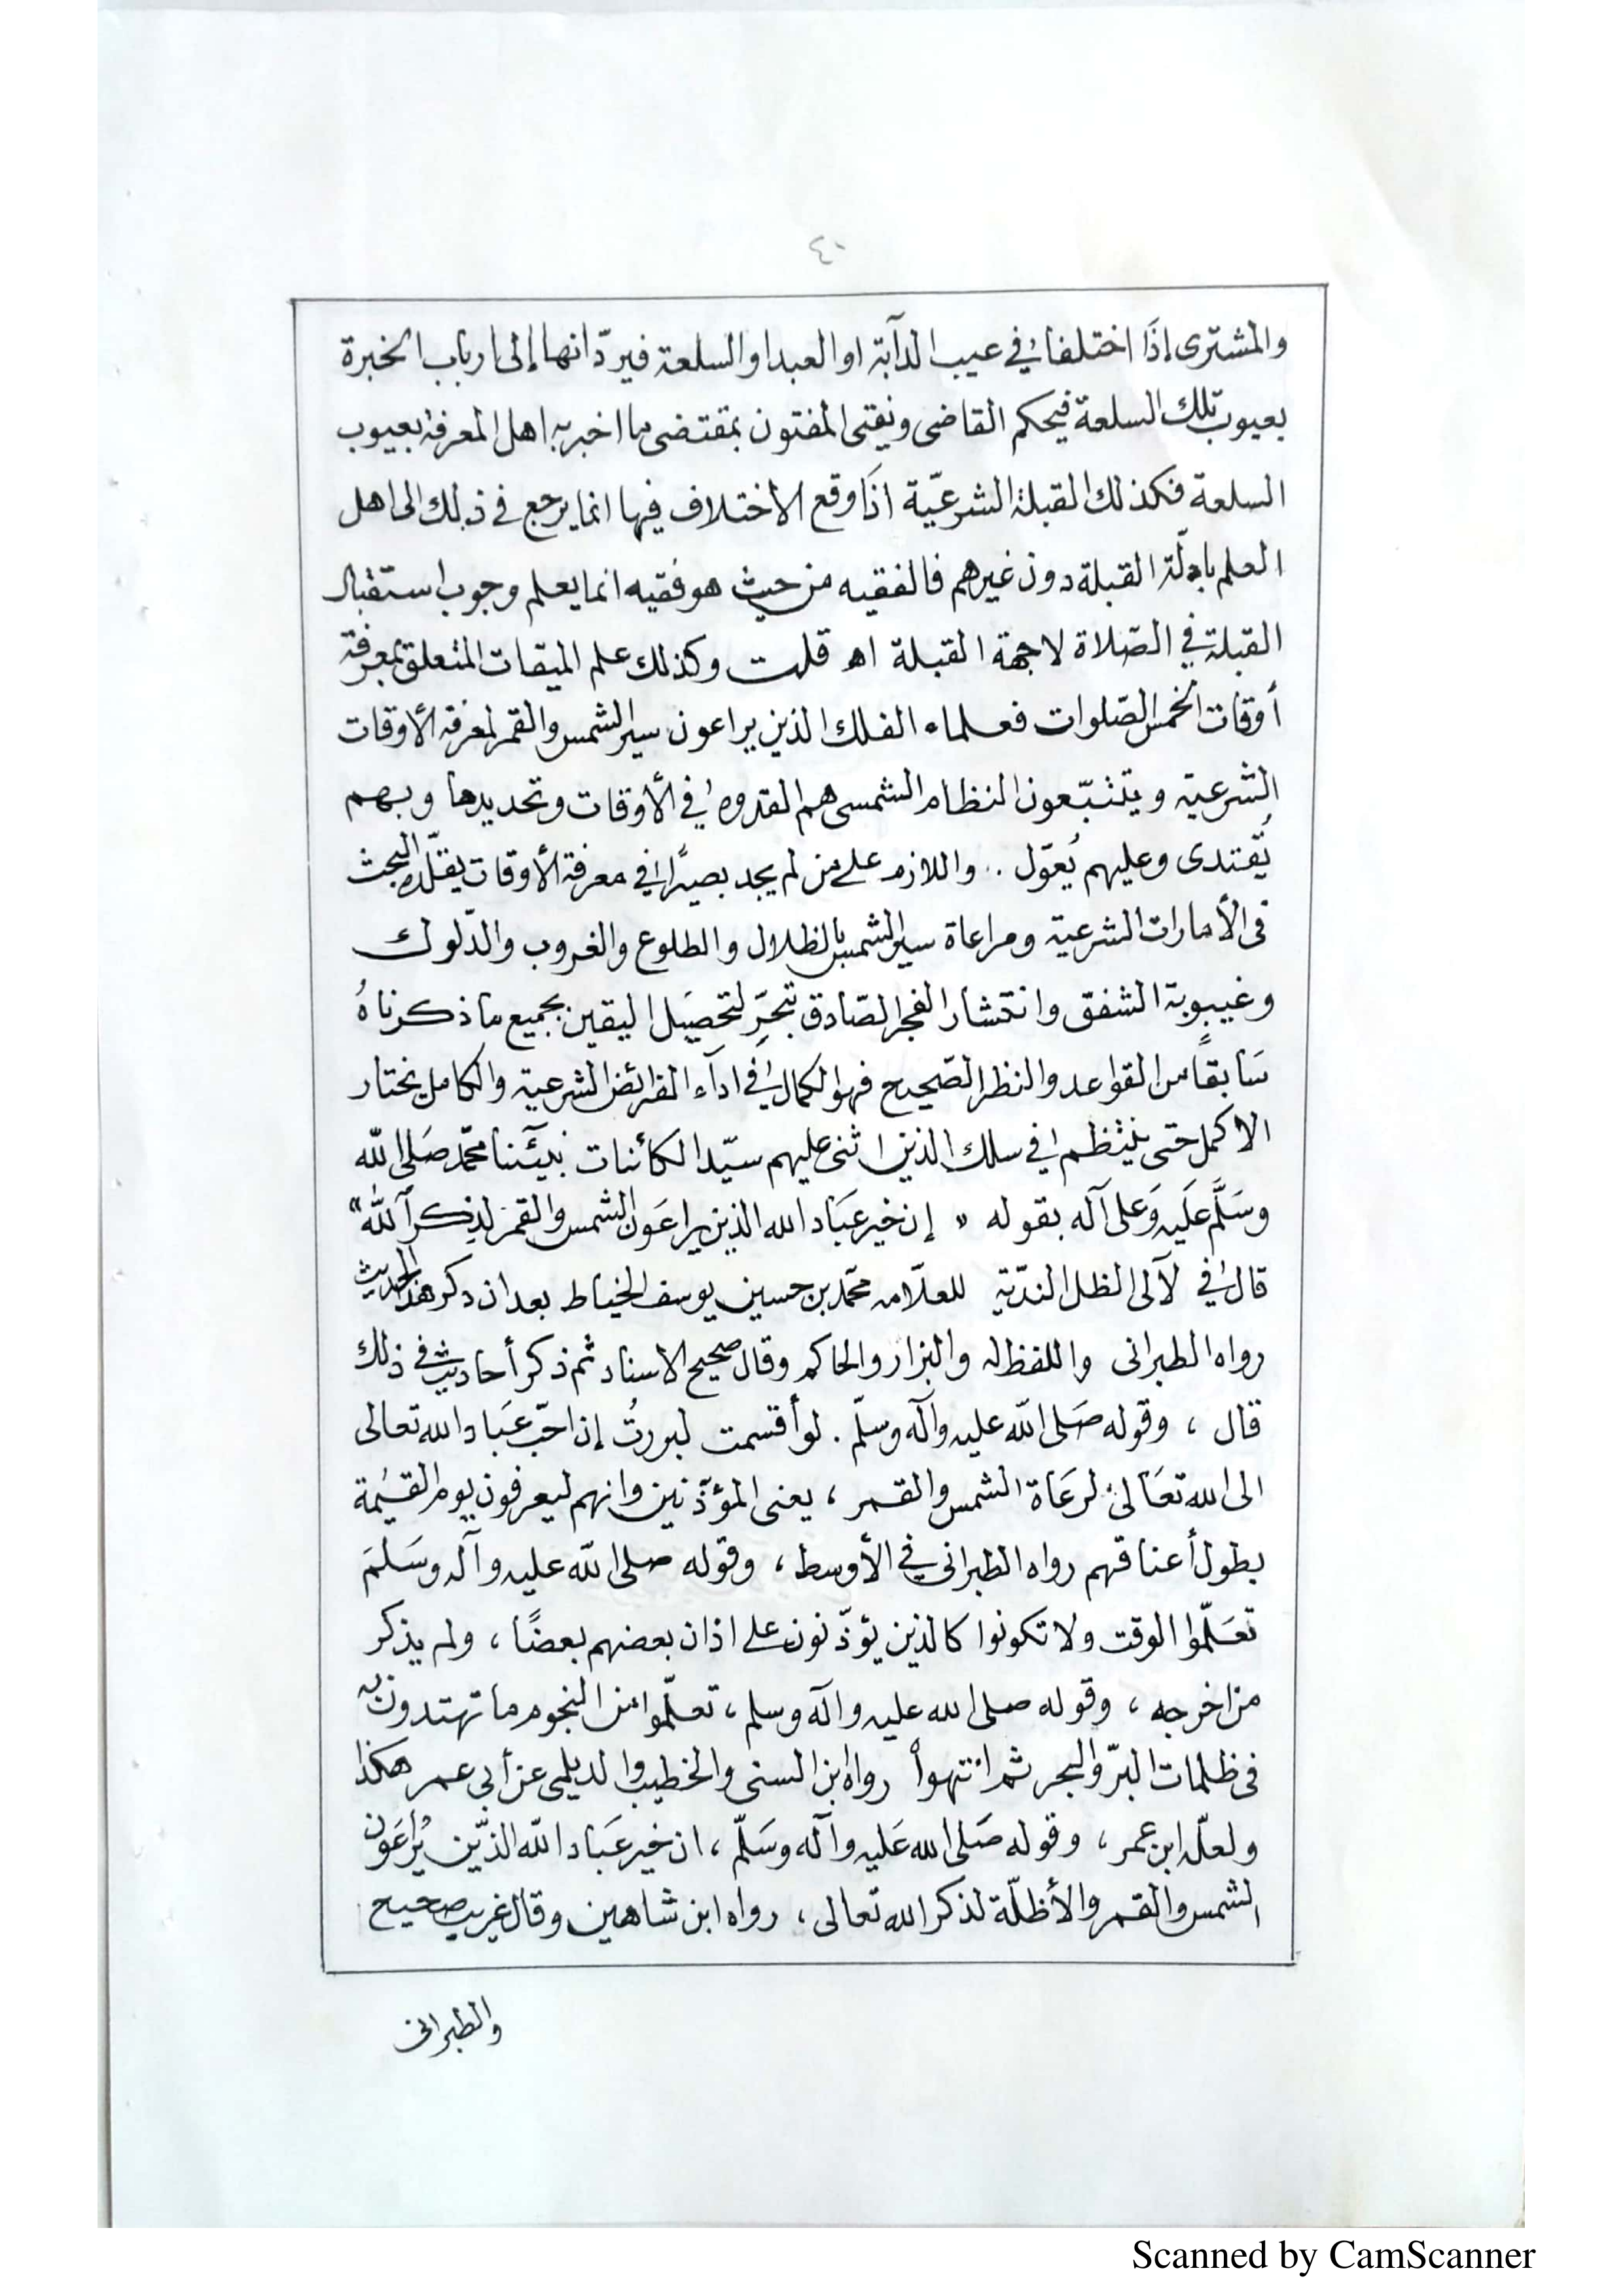 ٤٠
والمشترى إذَا اختلفا في عيب الدآبة او العبد او السلعة فيردّ انها إلى ارباب الخبرة
بعيوب تلك السلعة فيحكم القاضى ويفتى المفتون بمقتضى ما اخبر به اهل المعرفة بعيوب
السلعة فكذلك القبلة الشرعيّة اذَا وقع الاختلاف فيها انما يرجع في ذلك الى اهل
العلم بادلّة القبلة دون غيرهم فالفقيه من حيث هو فقيه انما يعلم وجوب استقبال
القبلة في الصّلاة لا جهة القبلة اهـ قلت وكذلك علم الميقات المتعلق بمعرفة
أوقات الخمس الصّلوات فعلماء الفلك الذين يراعون سير الشمس والقمر لمعرفة الأوقات
الشرعية ويتتبّعون النظام الشمسى هم القدوه في الأوقات وتحديدها وبهم
يُقتدى وعليهم يُعوّل .. واللازم على من لم يجد بصيرًا في معرفة الأوقات يقلّده البحث
في الأمارات الشرعية ومراعاة سير الشمس بالظلال والطلوع والغروب والدّلوك
وغيبوبة الشفق وانتشار الفجر الصّادق بتحرٍّ لتحصيل اليقين بجميع ما ذكرناهُ
سَابقاً من القواعد والنظر الصّحيح فهو الكمال في ادآء الفرائض الشرعية والكامل يختار
الاكمل حتى ينتظم في سلك الذين اثنى عليهم سيّد الكائنات نبيّنا محمّد صَلى الله
وسَلَّم عَليه وَعلى آله بقوله « إن خير عبَاد الله الذين يراعَون الشمس والقمر لذكر ألله "
قال في لآلى الظل الندّية للعلّامه محمّد بن حسين يوسف الخياط بعد ان ذكر هذا الحديث
رواه الطبرانى واللفظ له والبزار والحاكم وقال صحيح الاسناد ثم ذكر أحاديث في ذلك
قال ، وقوله صَلى الله عليه وآله وسلّم . لو أقسمت لبررتُ إن احّب عبَاد الله تعالى
الى الله تعَالى لرعَاة الشمس والقمر ، يعنى المؤذّنين وانهم ليعرفون يوم القيٰمة
بطول أعناقهم رواه الطبرانى في الأوسط ، وقوله صلى الله عليه وآله وسَلمَ
تعَلّموا الوقت ولا تكونوا كالذين يؤذّنون على اذان بعضهم بعضًا ، ولم يذكر
من اخرجه ، وقوله صلى الله عليه وآله وسلم ، تعلّموا من النجوم ما تهتدون به
في ظلمات البرّ والبحر ثم انتهوا رواه ابن السنى والخطيب والديلمى عن أبى عمر هكذا
ولعلّه ابن عمر ، وقوله صَلى الله عَليه وآله وسَلّم ، ان خير عبَاد الله الذّين يُراعَون
الشمس والقمر والأظلّة لذكر الله تعالى ، رواه ابن شاهين وقال غريب صحيح
والطبرانى
Scanned by CamScanner